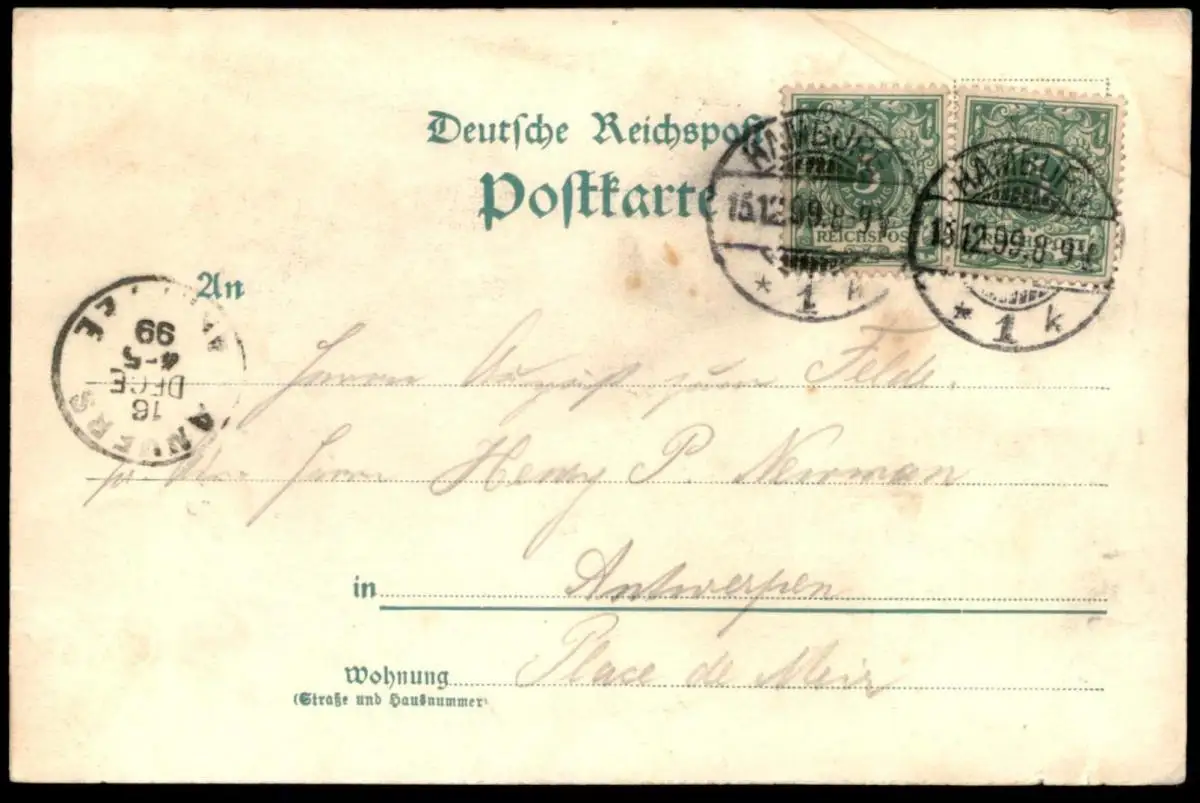 Deutsche Reichspost
Postkarte
HAMBURG
15.12.99.8-9V.
* 1 k
5 PFENNIG
REICHSPOST
HAMBURG
15.12.99.8-9V.
* 1 k
REICHSPOST
An
ANVERS
16
DECE
4-5
99
Herrn August zum Felde.
Herrn Henry P. Newman
in Antwerpen
Wohnung Place de Meir
(Straße und Hausnummer)